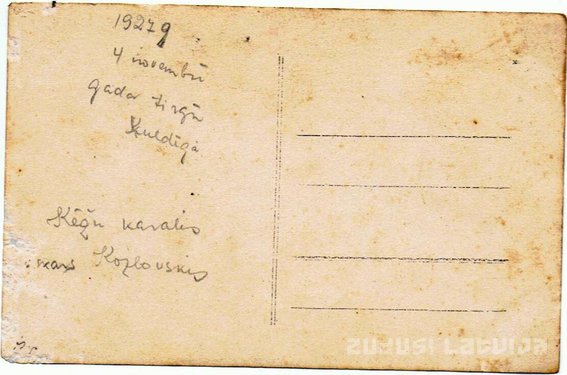 1927g
4 novembrī
gadar tirgū
Kuldīgā
Ķēžu karalis
Kozlovskis
ZUDUSI LATVIJA